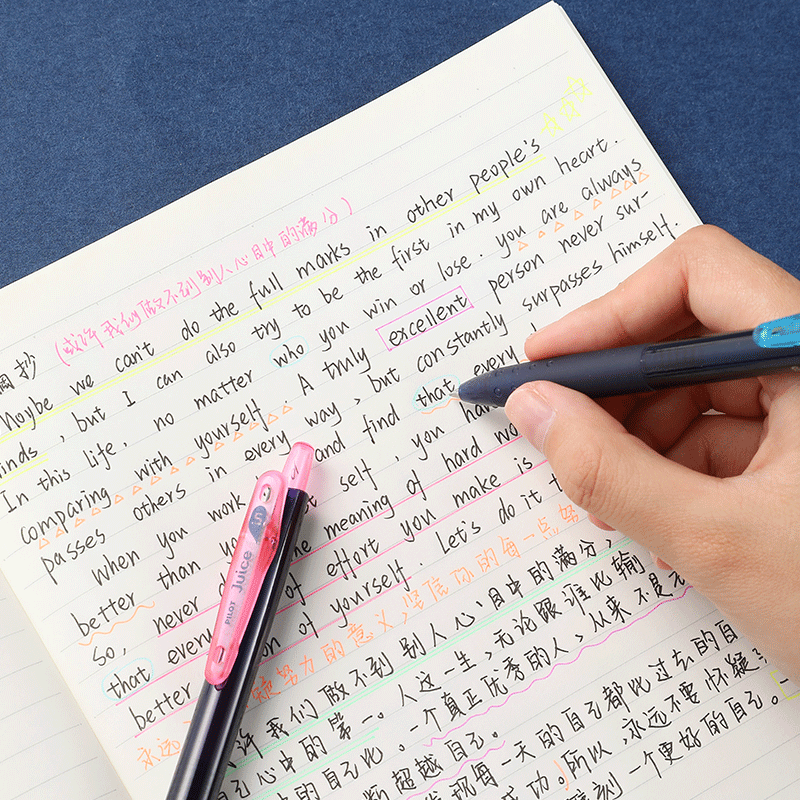 抄 (或许我们做不到别人心目中的满分)
Maybe we can't do the full marks in other people's
inds, but I can also try to be the first in my own heart.
In this life, no matter who you win or lose. you are always
comparing with yourself. A truly excellent person never sur-
passes others in every way, but constantly surpasses himself.
When you work and find that every
better than yo self, you ha
So, never meaning of hard wo
that every of effort you make is
better on of yourself. Let's do it t
永远 疑努力的意义,坚信你的每一点努
许我们做不到别人心目中的满分,
自己心中的第一。人这一生,无论跟谁比输
的自己比。一个真正优秀的人,从来不是无
断超越自己。
发现每一天的自己都比过去的自
成功。所以,永远不要怀疑
刻一个更好的自己。
PILOT Juice 5